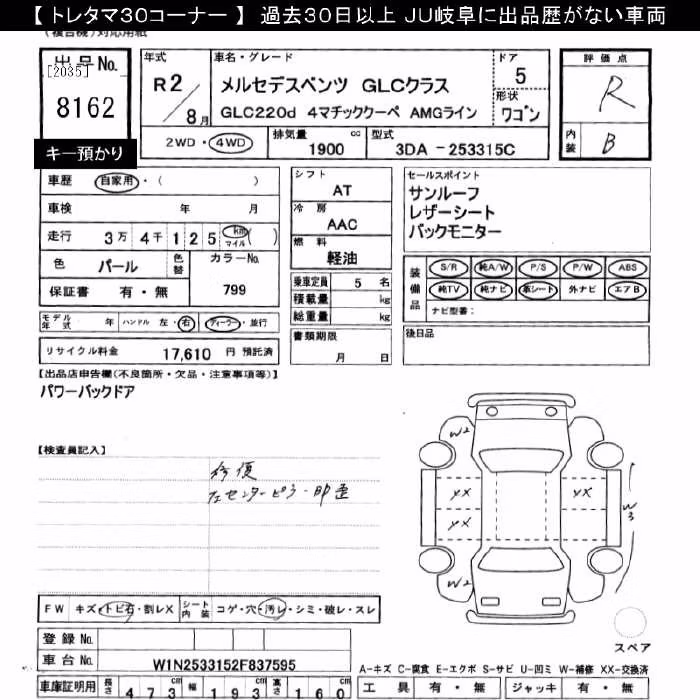 【 トレタマ30コーナー 】 過去30日以上 JU岐阜に出品歴がない車両
(複合機)対応用紙
出品No.
[2035]
8162
キー預かり
年式
R2/8月
車名・グレード
メルセデスベンツ GLCクラス
GLC220d 4マチッククーペ AMGライン
ドア
5
形状
ワゴン
2WD・4WD
排気量
1900 cc
型式
3DA - 253315C
評価点
R
内装
B
車歴 自家用・( )
車検 年 月
走行 3万 4千 1 2 5 km マイル ( )
色 パール
色替
カラーNo.
799
保証書 有・無
モデル年式 年 ハンドル 左・右 ディーラー・並行
リサイクル料金 17,610 円 預託済
シフト
AT
冷房
AAC
燃料
軽油
乗車定員 5 名
積載量 kg
総重量 kg
書類期限
月 日
セールスポイント
サンルーフ
レザーシート
バックモニター
装備品
S/R 純A/W P/S P/W ABS
純TV 純ナビ 革シート 外ナビ エアB
ナビ型番:
後日品
【出品店申告欄(不良箇所・欠品・注意事項等)】
パワーバックドア
【検査員記入】
修復
左センターピラー 凹歪
W2
XX
XX
XX
W3
W2
スペア
FW キズ・トビ石・割レX
シート内装 コゲ・穴・汚レ・シミ・破レ・スレ
登録No.
車台No. W1N2533152F837595
車庫証明用 長さ 473cm 幅 193cm 高さ 160cm
A-キズ C-腐食 E-エクボ S-サビ U-凹ミ W-補修 XX-交換済
工具 有・無 ジャッキ 有・無